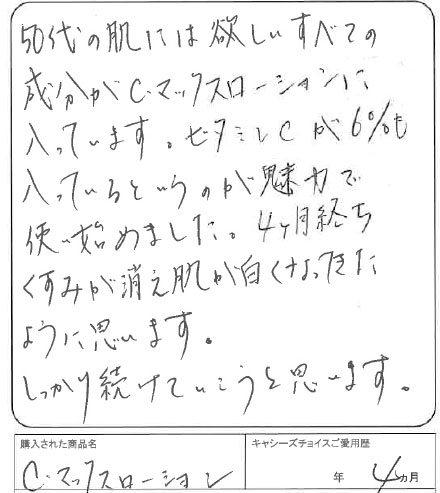 50代の肌には欲しいすべての
成分がC・マックスローションに
入っています。ビタミンCが6%も
入っているというのが魅力で
使い始めました。4ヶ月経ち
くすみが消え肌が白くなってきた
ように思います。
しっかり続けていこうと思います。
購入された商品名 キャシーズチョイスご愛用歴
C・マックスローション 年 4ヵ月